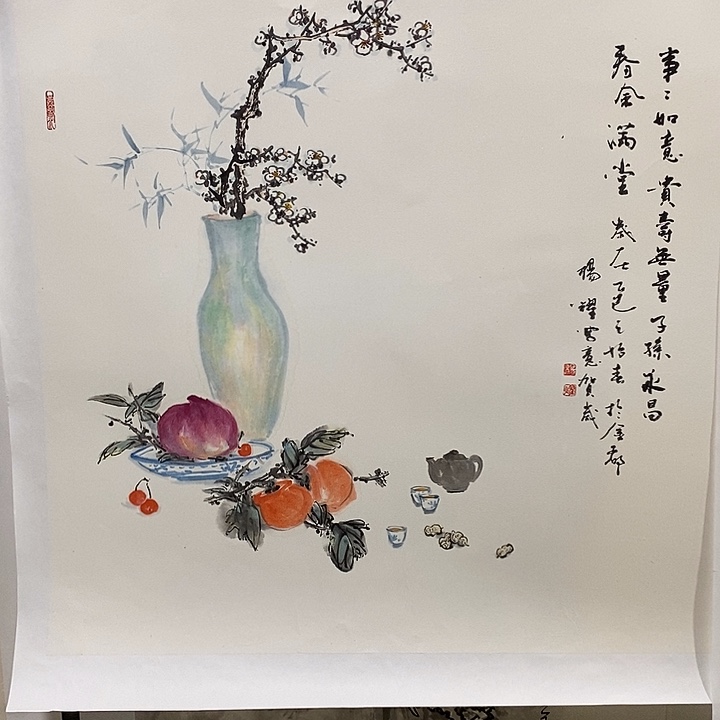 事〻如意貴壽無量子孫永昌
春金滿堂歲在乙巳之始春於金都
楊耀賀歲